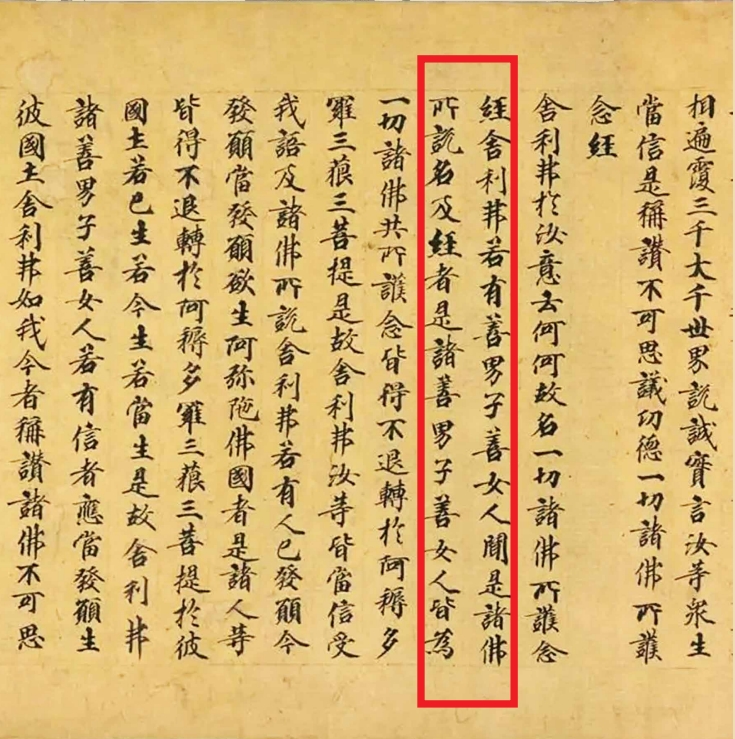 相遍覆三千大千世界說誠實言汝等衆生
當信是稱讚不可思議功德一切諸佛所護
念經
舍利弗於汝意云何何故名一切諸佛所護念
經舍利弗若有善男子善女人聞是諸佛
所說名及經者是諸善男子善女人皆為
一切諸佛共所護念皆得不退轉於阿耨多
羅三藐三菩提是故舍利弗汝等皆當信受
我語及諸佛所說舍利弗若有人已發願今
發願當發願欲生阿弥陁佛國者是諸人等
皆得不退轉於阿耨多羅三藐三菩提於彼
國土若已生若今生若當生是故舍利弗
諸善男子善女人若有信者應當發願生
彼國土舍利弗如我今者稱讚諸佛不可思